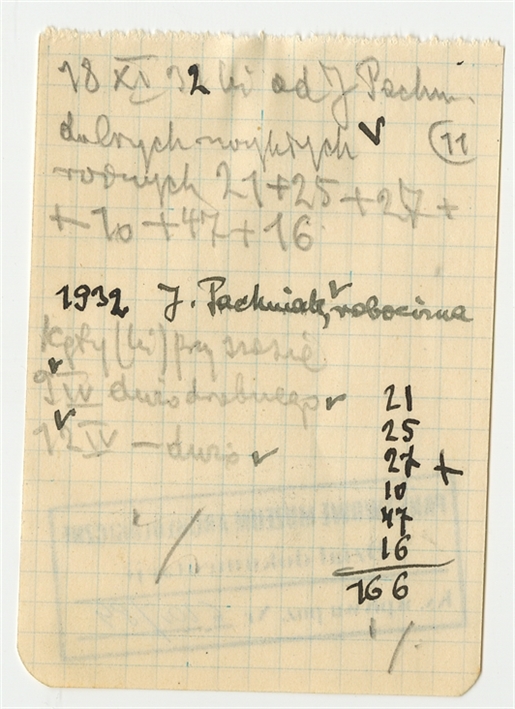 18 XI 32 ki od J Pachn.
dobrych zwykłych 11
rodnych 21+25+27+
+10+47+16
1932 J. Pachniak, robocizna
kgły (ki) przy szosie
9 IV dużo drobnego
12 IV – dużo
21
25
27 +
10
47
16
166